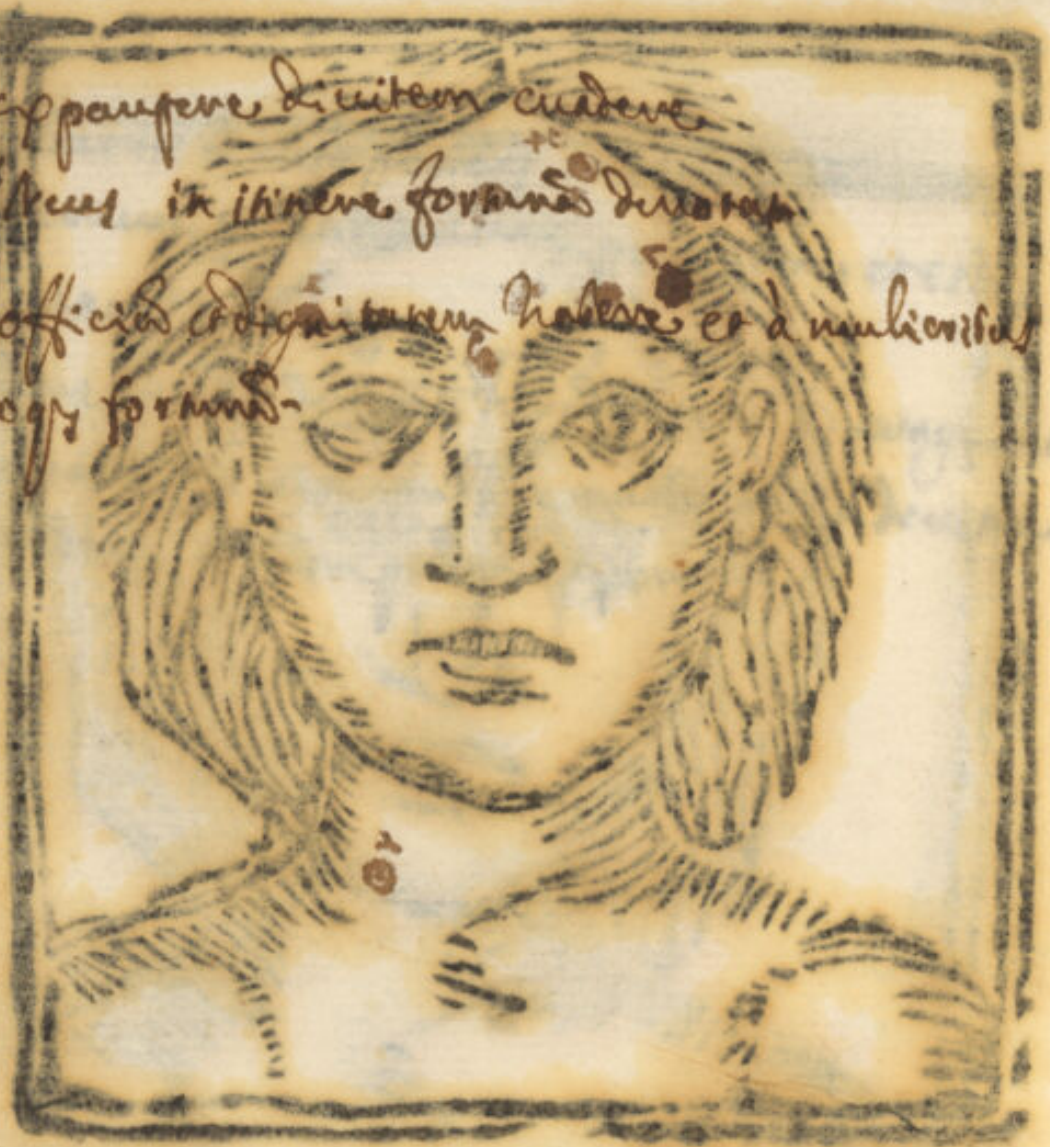 ex paupere divitem evadere
in itinere fortunã
officiã et dignitatem habere et à mulieribus
fortunã